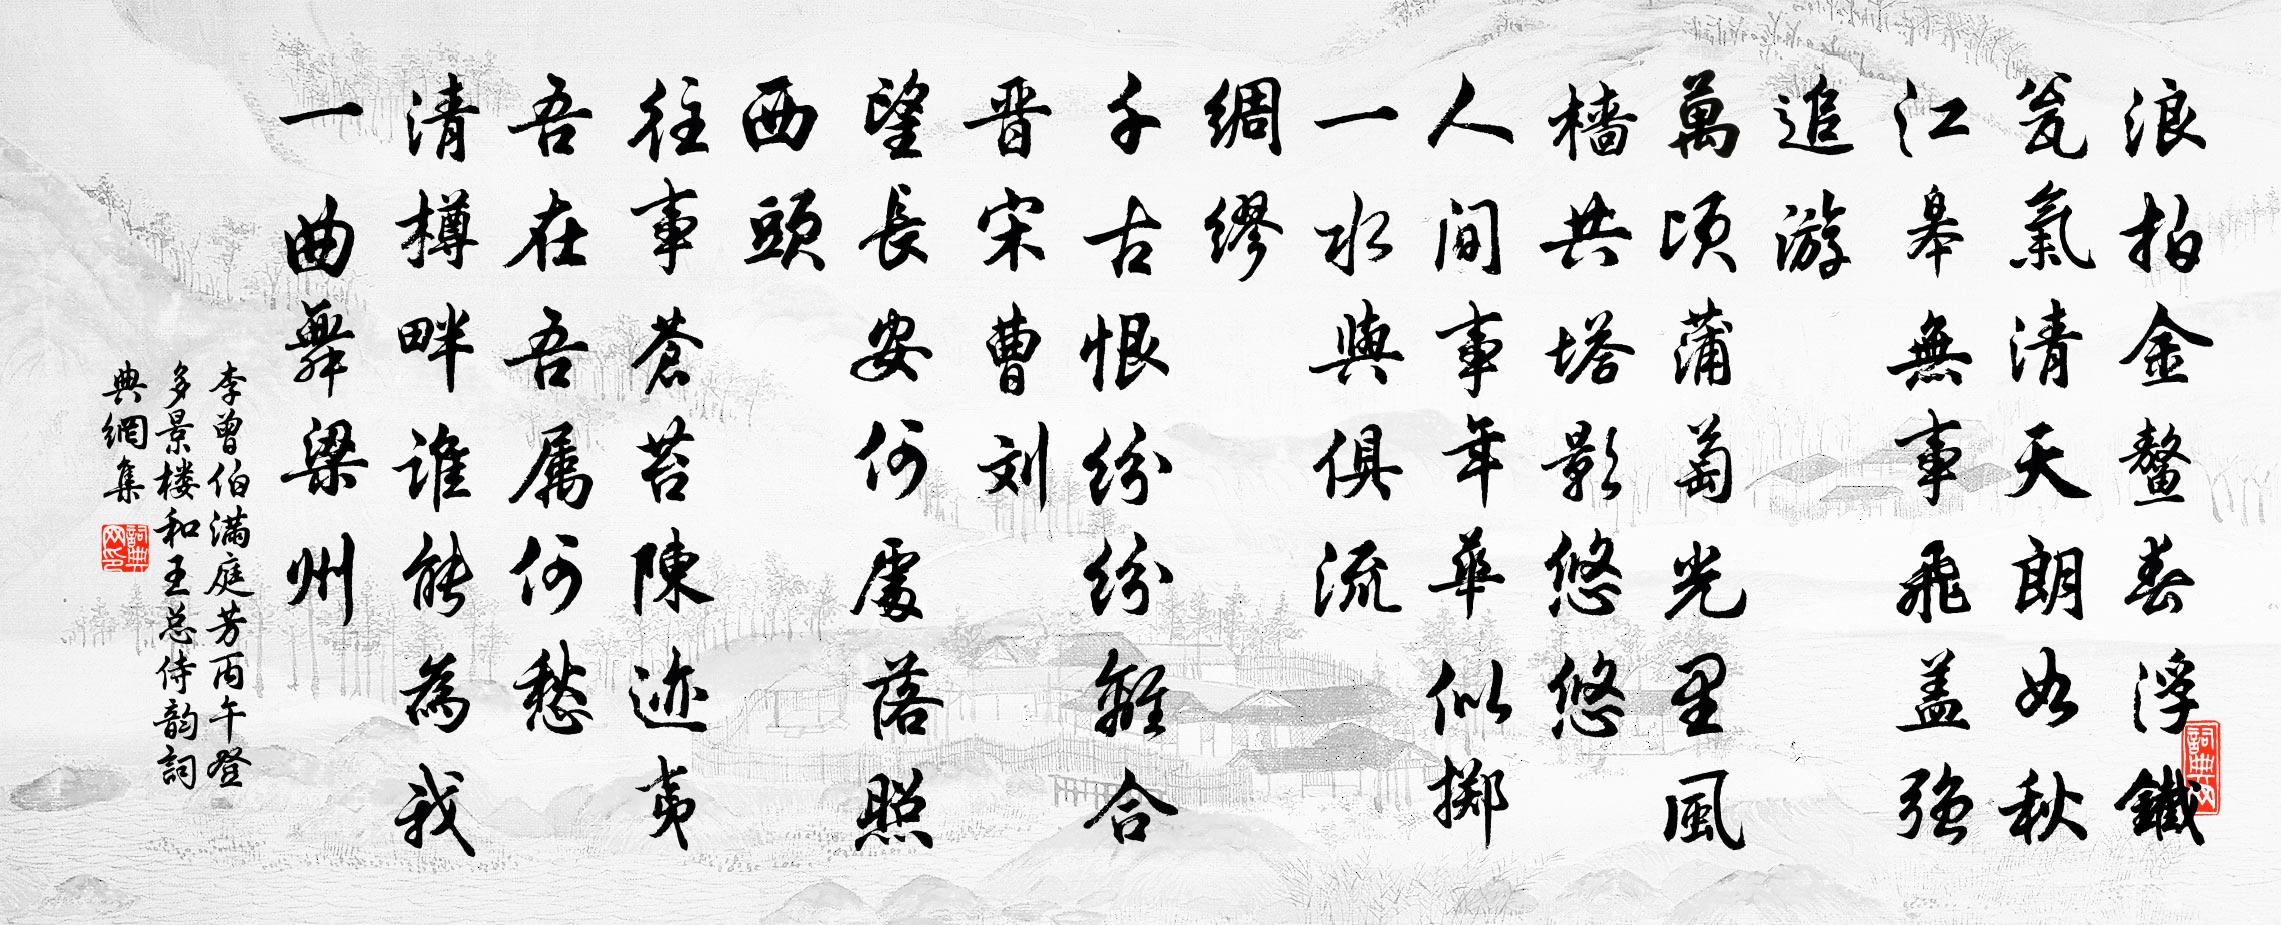 浪拍金鳌春浮鐵
瓮氣清天朗如秋
江皋無事飛盖强
追游
萬頃蒲萄光里風
樯共塔影悠悠
人间事年年華似掷
一水與俱流
绸缪
千古恨纷纷離合
晋宋曹刘
望長安何處落照
西頭
往事蒼苔陳迹夷
吾在吾属何愁
清樽畔谁能為我
一曲舞梁州
李曾伯满庭芳丙午登
多景楼和王总侍韵詞
典網集
詞典网印
詞典网